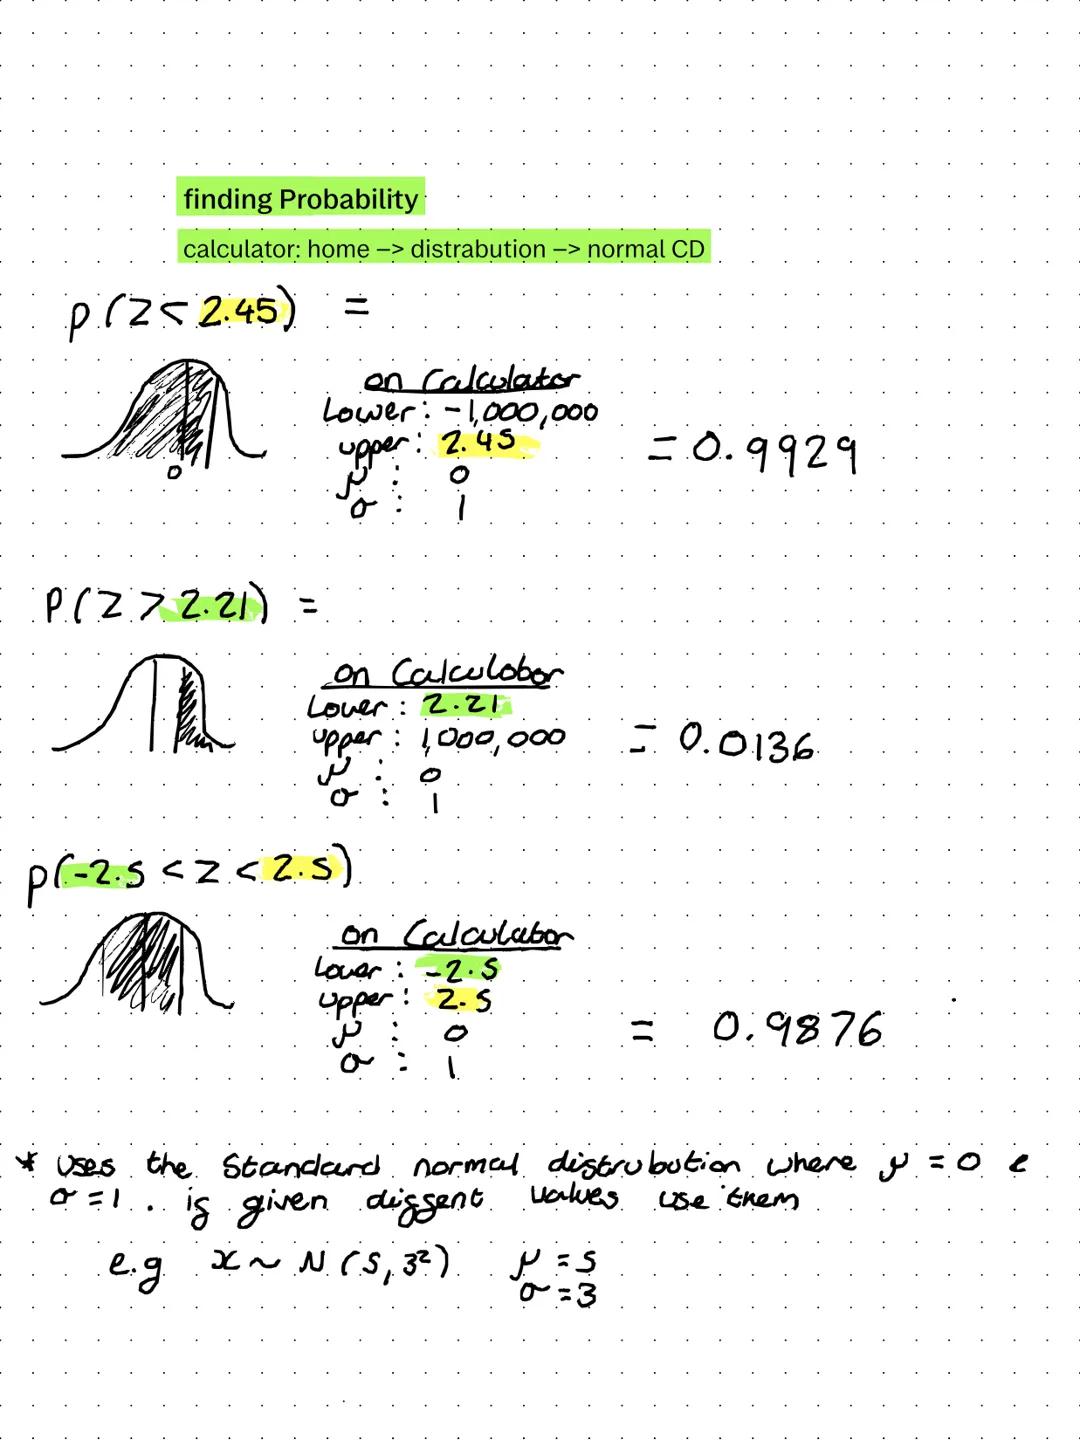 finding Probability
calculator: home –> distrabution –> normal CD
p(Z < 2.45) =
on Calculator
Lower: -1,000,000
upper: 2.45
μ : 0
σ : 1
= 0.9929
0
P(Z > 2.21) =
on Calculator
Lower: 2.21
upper: 1,000,000
μ : 0
σ : 1
= 0.0136
p(-2.5 < Z < 2.5)
on Calculator
Lower: -2.5
upper: 2.5
μ : 0
σ : 1
= 0.9876
* uses the Standard normal distrubution where μ = 0 &
σ = 1 . if given diffent values use them
e.g x ~ N (5, 3²) μ = 5
σ = 3